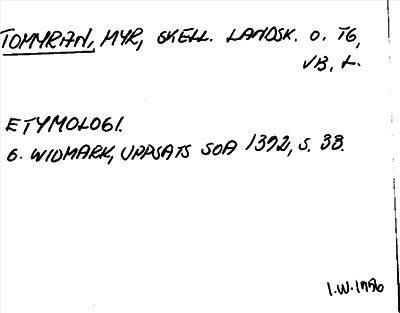 TOMYRAN, MYR, SKELL. LANDSK. O. TG,
VB, L.
ETYMOLOGI.
G. WIDMARK, UPPSATS SOA 1392, S. 38.
I.W. 1996